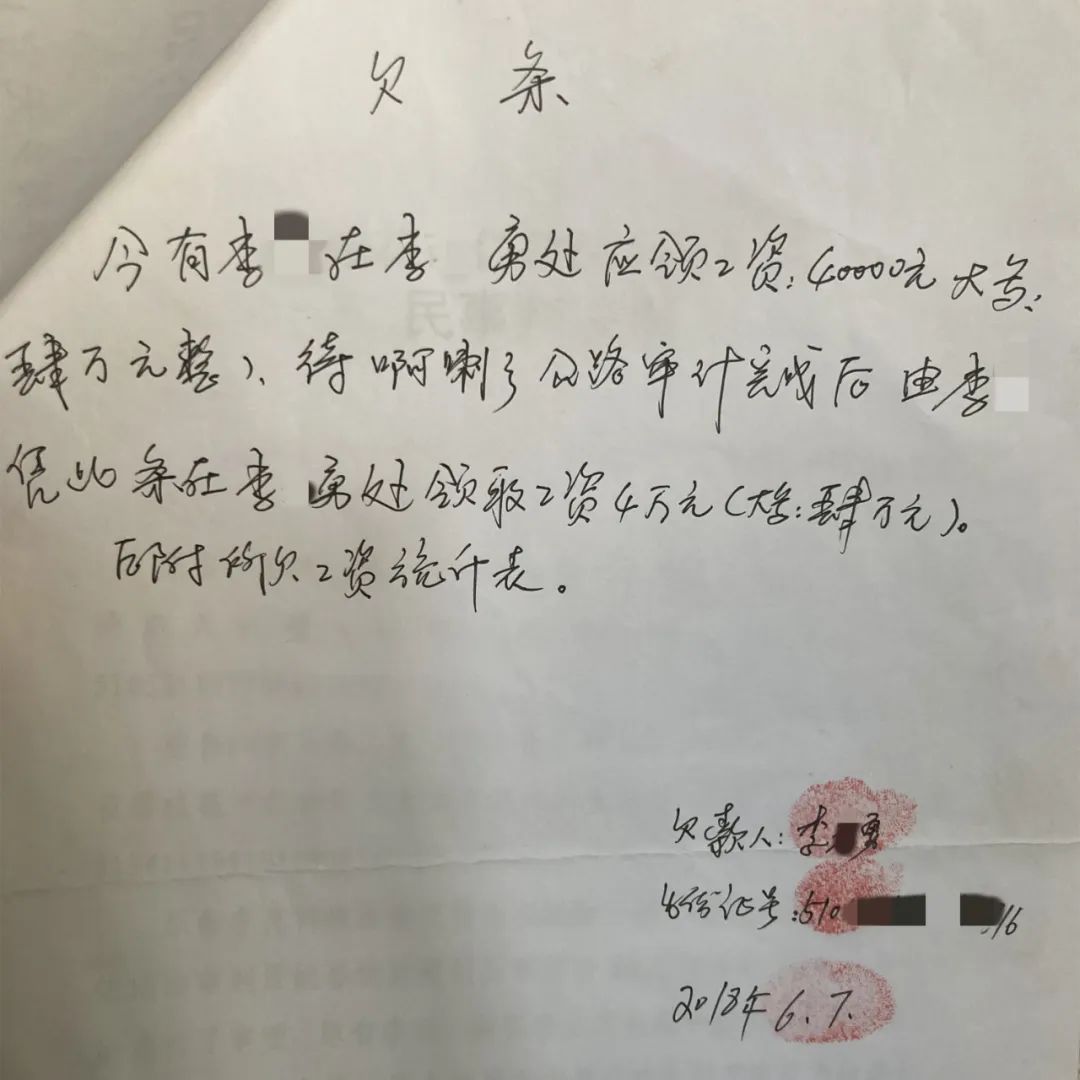 欠 条
今有李 在李 勇处应领工资:40000元大写:
肆万元整)、待啊喇 公路审计完成后由李
凭此条在李 勇处领取工资4万元(大写:肆万元)。
后附所欠工资统计表。
欠款人:李 勇
身份证号:510 16
2018年6.7.